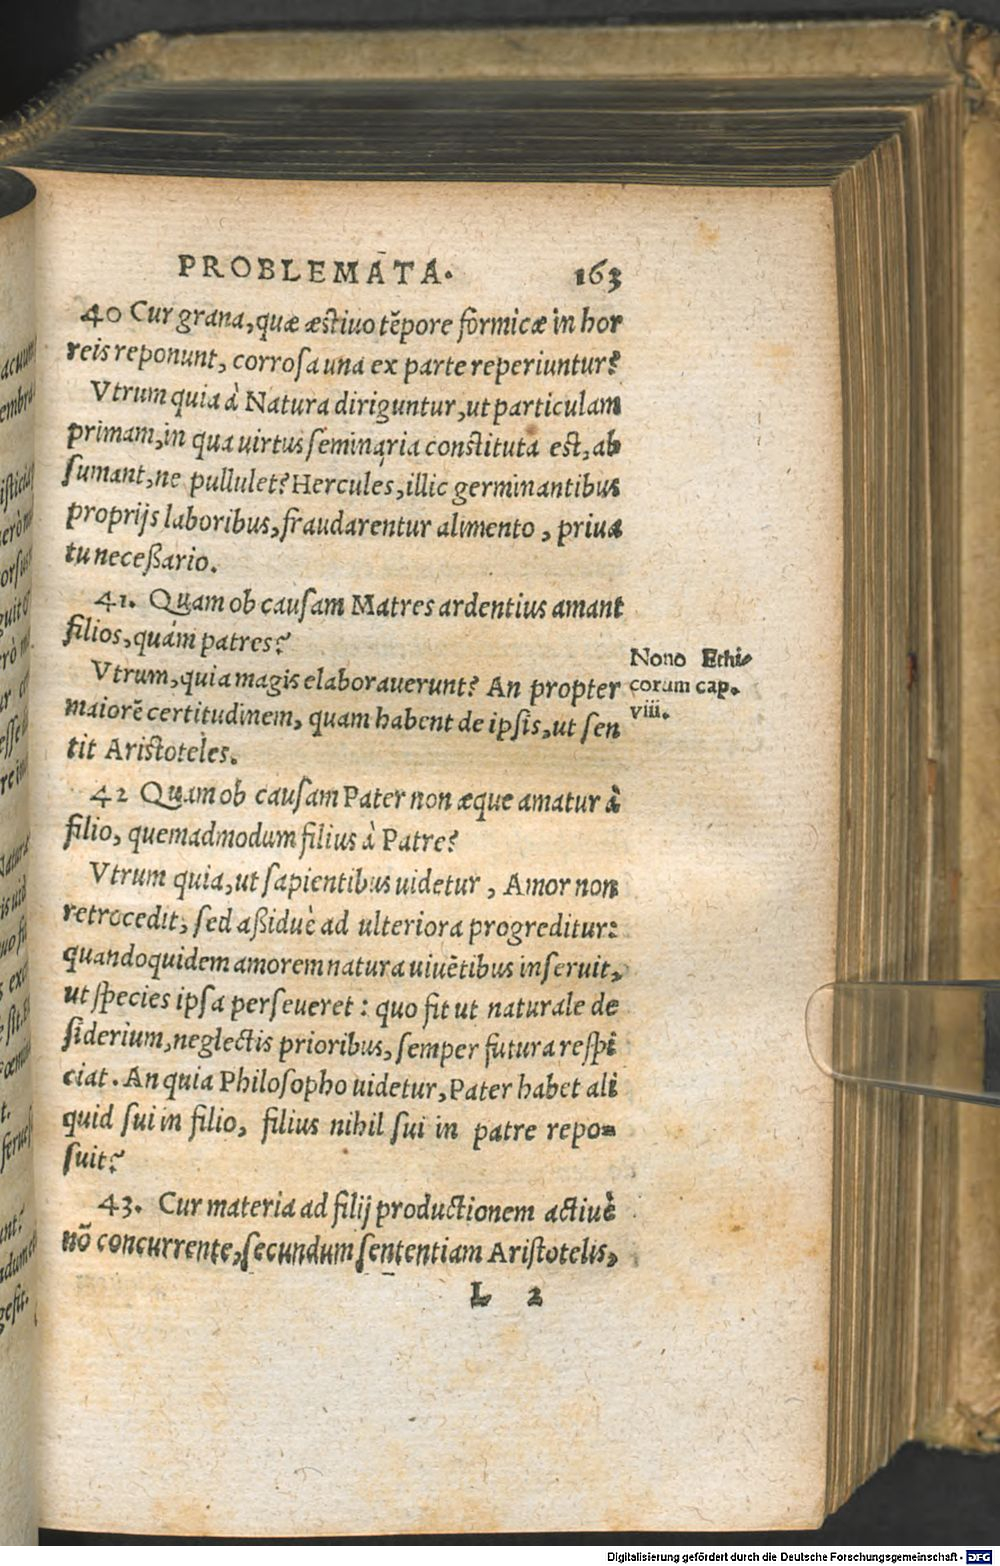 PROBLEMATA. 163
40 Cur grana, quæ æstiuo tẽpore formicæ in hor
reis reponunt, corrosa una ex parte reperiuntur?
Vtrum quia à Natura diriguntur, ut particulam
primam, in qua uirtus seminaria constituta est, ab
sumant, ne pullulet? Hercules, illic germinantibus
proprijs laboribus, fraudarentur alimento, priua
tu neceßario.
41. Quam ob causam Matres ardentius amant
filios, quám patres?
Vtrum, quia magis elaborauerunt? An propter
maiorẽ certitudinem, quam habent de ipsis, ut sen
tit Aristoteles.
Nono Ethi-
corum cap.
viii.
42 Quam ob causam Pater non æque amatur à
filio, quemadmodum filius à Patre?
Vtrum quia, ut sapientibus uidetur, Amor non
retrocedit, sed aßiduè ad ulteriora progreditur:
quandoquidem amorem natura uiuẽtibus inseruit,
ut species ipsa perseueret: quo fit ut naturale de
siderium, neglectis prioribus, semper futura respi
ciat. An quia Philosopho uidetur, Pater habet ali
quid sui in filio, filius nihil sui in patre repo=
suit?
43. Cur materia ad filij productionem actiuè
nõ concurrente, secundum sententiam Aristotelis,
L 2
acuum
nt.
gesit.
Digitalisierung gefördert durch die Deutsche Forschungsgemeinschaft - DFG